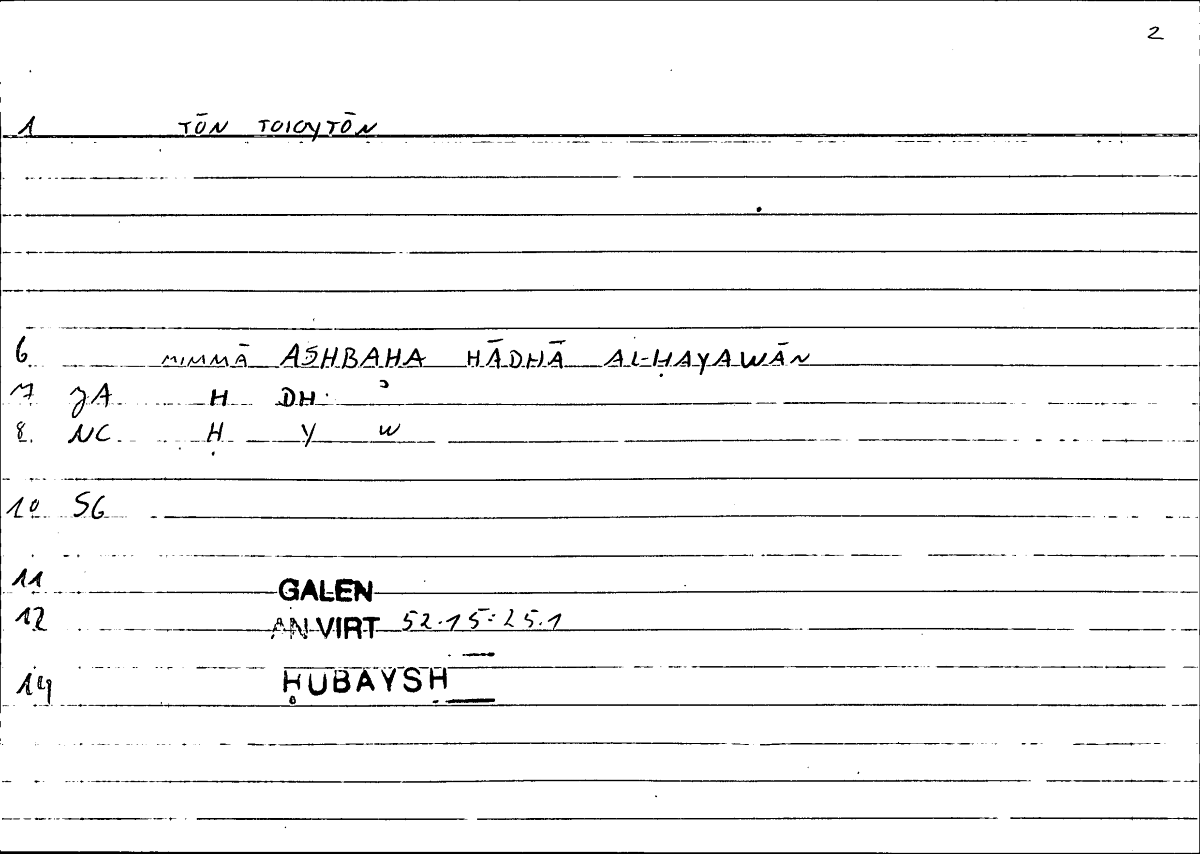 2
1 TŌN TOIOYTŌN
6 MIMMĀ ASHBAHA HĀDHĀ AL-ḤAYAWĀN
7 JA H DH ʾ
8. NC Ḥ Y W
10 SG
11 GALEN
12 AN VIRT 52.15:25.1
14 ḤUBAYSH